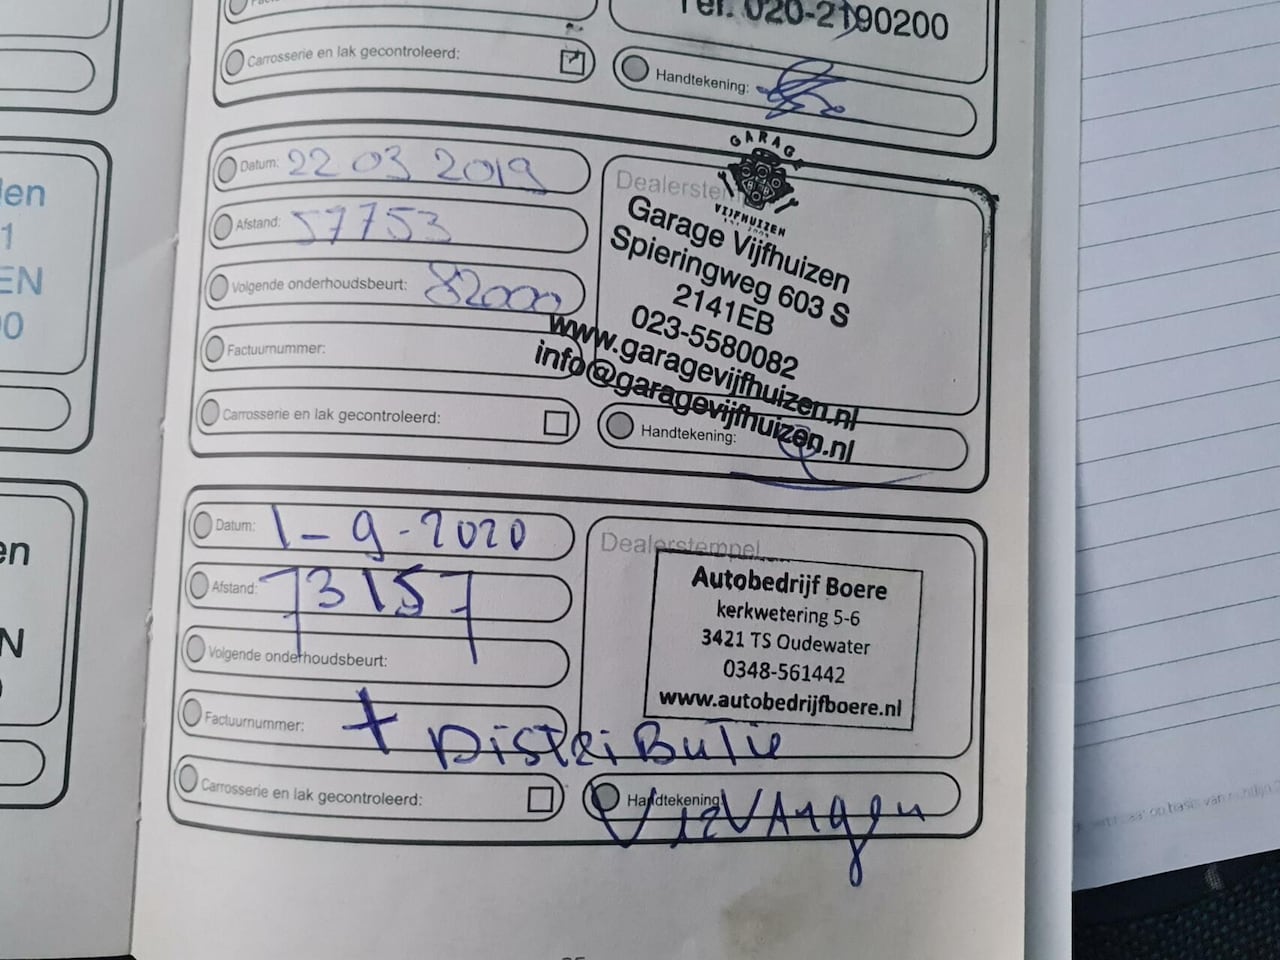 Tel. 020-2190200
Carrosserie en lak gecontroleerd:
Handtekening:
Datum: 22 03 2019
Afstand: 57753
Volgende onderhoudsbeurt: 82000
Factuurnummer:
Carrosserie en lak gecontroleerd:
GARAGE
VIJFHUIZEN
Dealerstempel
Garage Vijfhuizen
Spieringweg 603 S
2141EB
023-5580082
www.garagevijfhuizen.nl
info@garagevijfhuizen.nl
Handtekening:
Datum: 1-9-2020
Afstand: 73157
Volgende onderhoudsbeurt:
Factuurnummer:
+ DistRiBuTie
Carrosserie en lak gecontroleerd:
Dealerstempel
Autobedrijf Boere
kerkwetering 5-6
3421 TS Oudewater
0348-561442
www.autobedrijfboere.nl
Handtekening:
VeRVAngen
len
1
EN
00
en
N